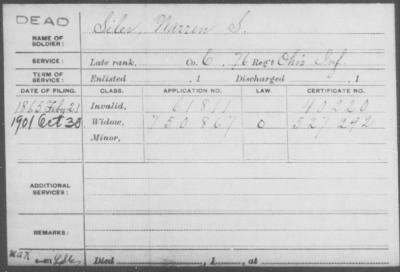 DEAD
NAME OF SOLDIER: Siler, Warren S.
SERVICE: Late rank, Co. C, 76 Reg't Ohio Inf.
TERM OF SERVICE: Enlisted , 1 Discharged , 1
DATE OF FILING. CLASS. APPLICATION NO. LAW. CERTIFICATE NO.
1865 Feby 21 Invalid, 61811 40220
1901 Oct 30 Widow, 750867 0 527242
Minor,
ADDITIONAL SERVICES:
REMARKS:
Died , 1 , at